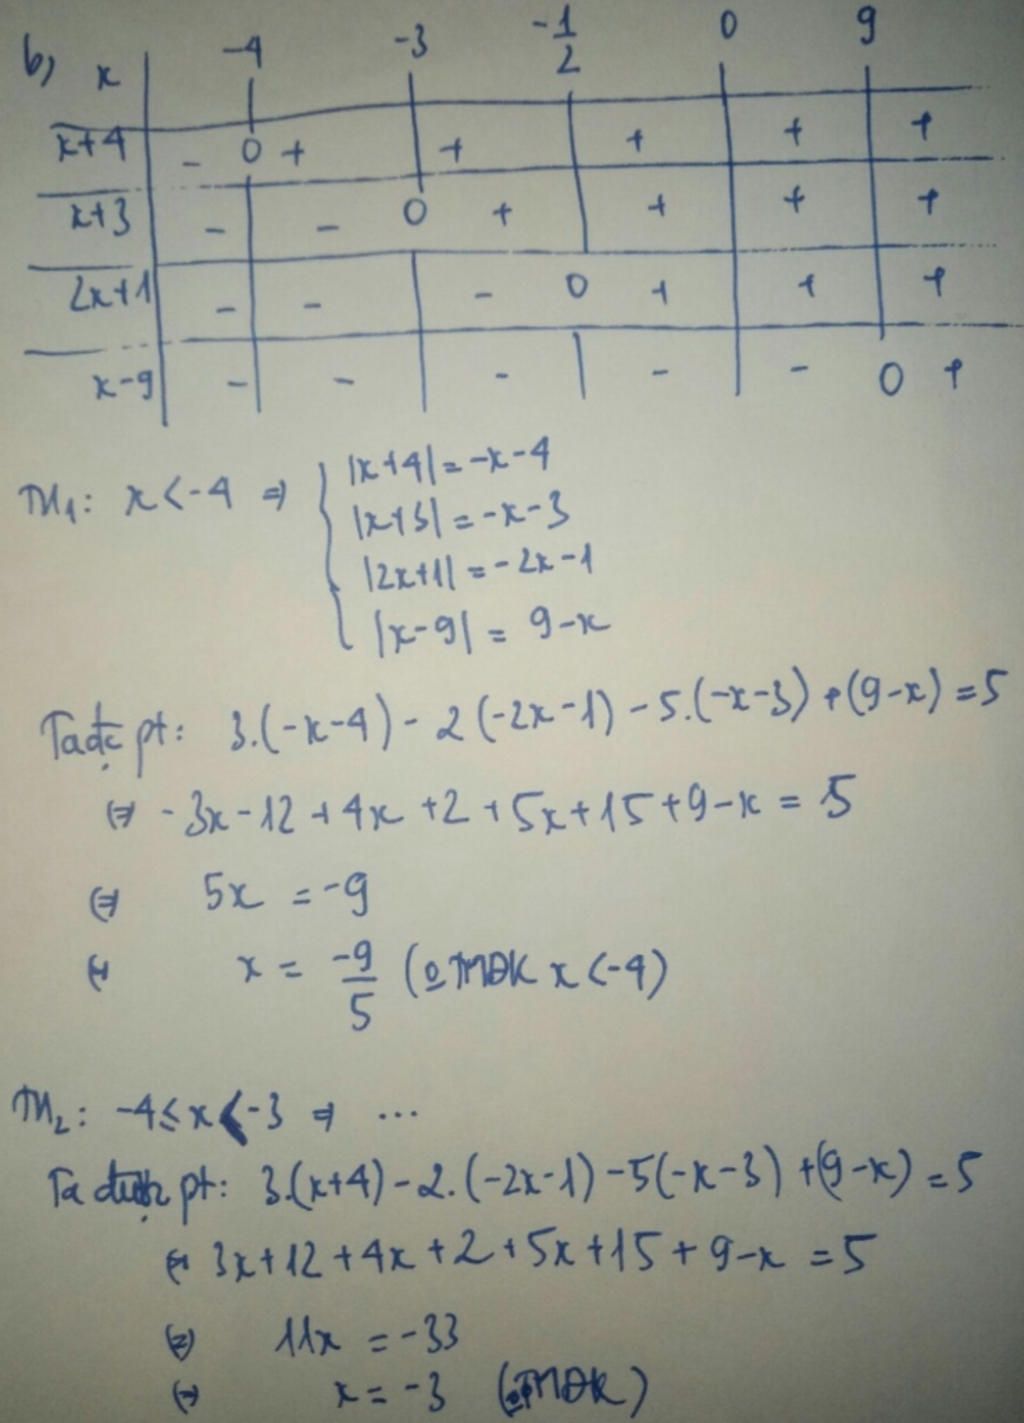 b) x -4 -3 -1/2 0 9
x+4 - 0 + + + + +
x+3 - - 0 + + + +
2x+1 - - - 0 + + +
x-9 - - - - - 0 +
TH1: x<-4 ⇒ { |x+4| = -x-4
|x+3| = -x-3
|2x+1| = -2x-1
|x-9| = 9-x
Ta đc pt: 3.(-x-4) - 2(-2x-1) - 5.(-x-3) + (9-x) = 5
⇔ -3x-12+4x+2+5x+15+9-x = 5
⇔ 5x = -9
⇔ x = -9/5 (o TMĐK x<-4)
TH2: -4≤x<-3 ⇒ ...
Ta được pt: 3.(x+4) - 2.(-2x-1) - 5(-x-3) + (9-x) = 5
⇔ 3x+12+4x+2+5x+15+9-x = 5
⇔ 11x = -33
⇔ x = -3 (o TMĐK)